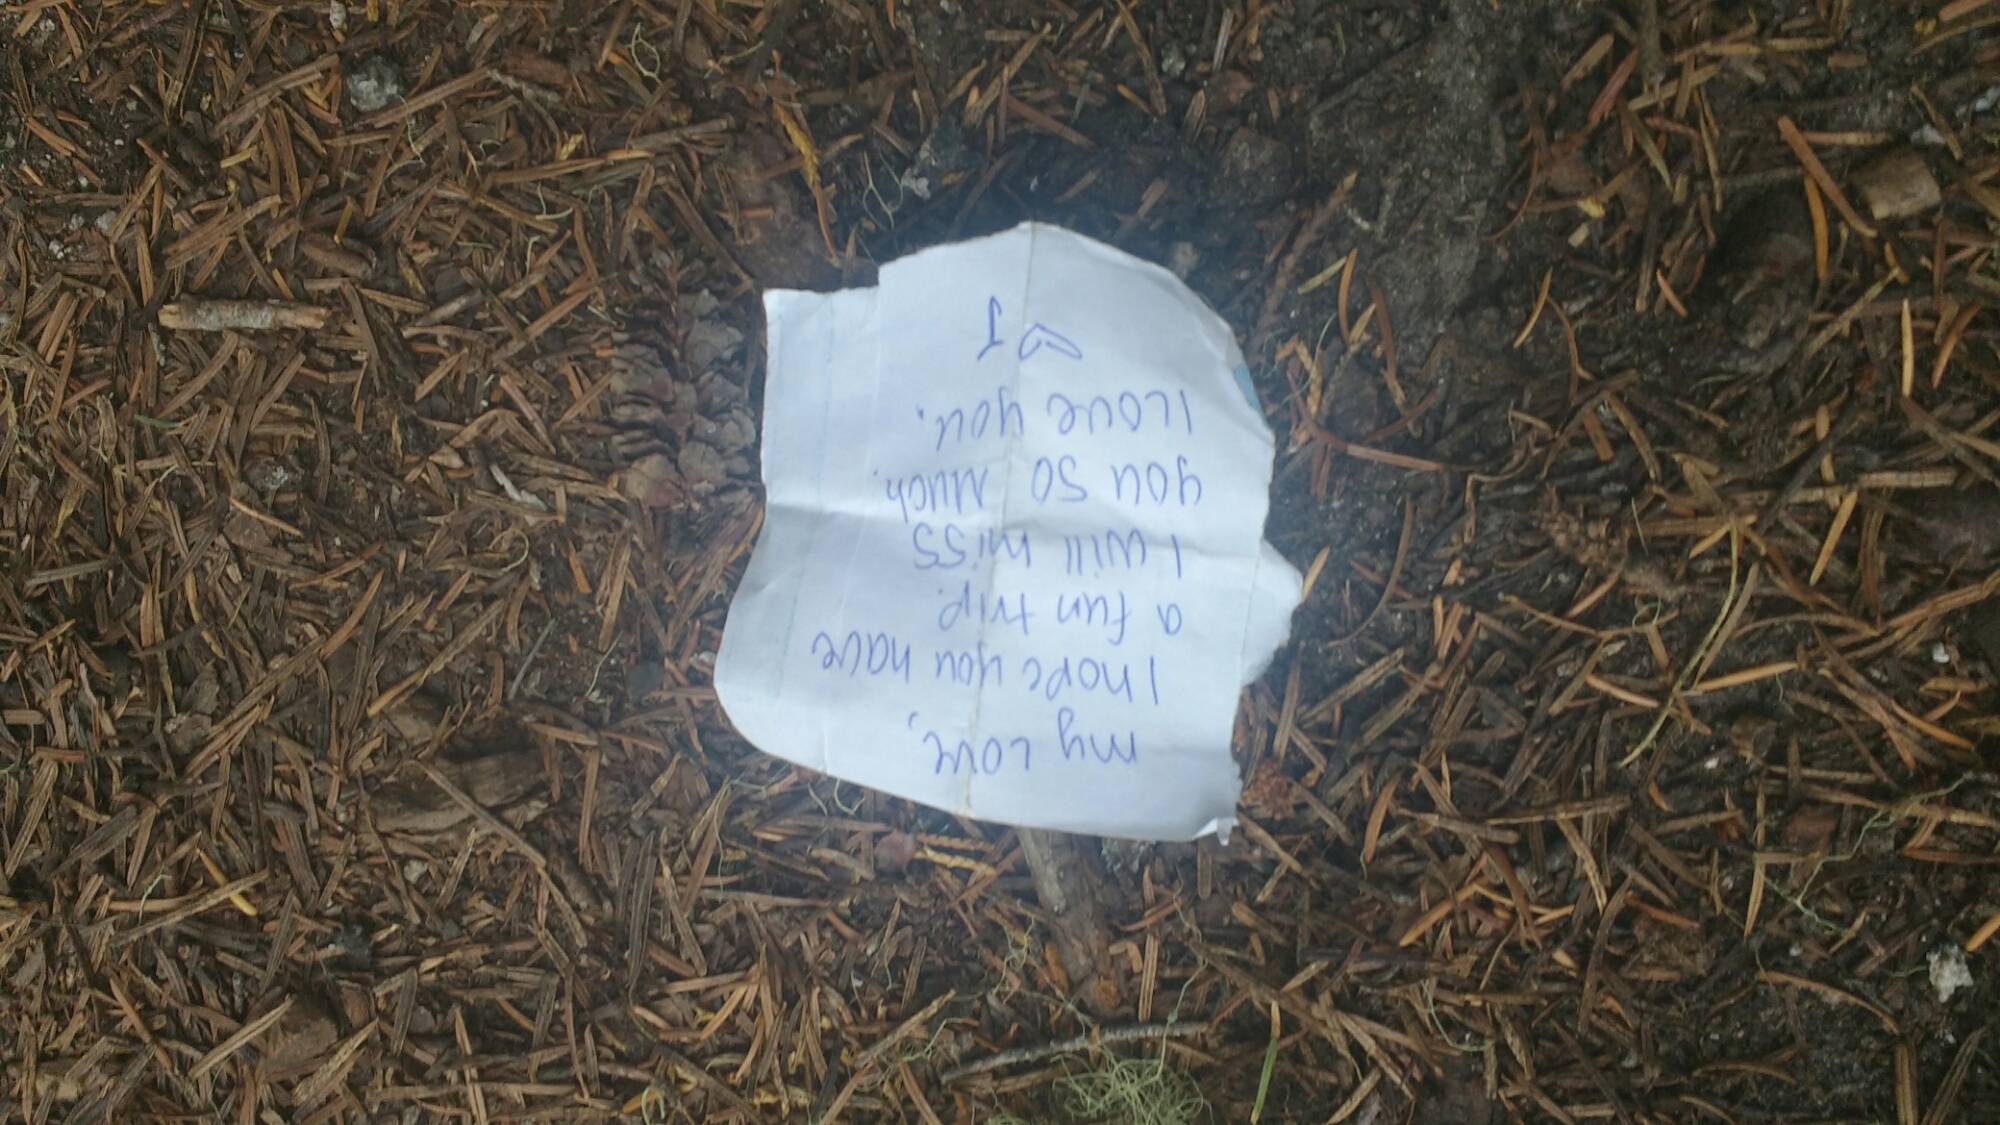 My Love,
I hope you have
a fun trip.
I will miss
you so much.
I love you.
♡ J